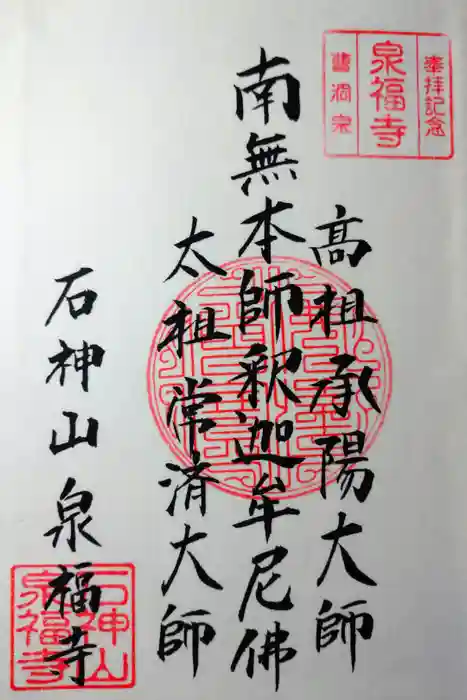 奉拝記念
泉福寺
曹洞宗
高祖承陽大師
南無本師釈迦牟尼佛
太祖常済大師
石神山泉福寺
石神山
泉福寺